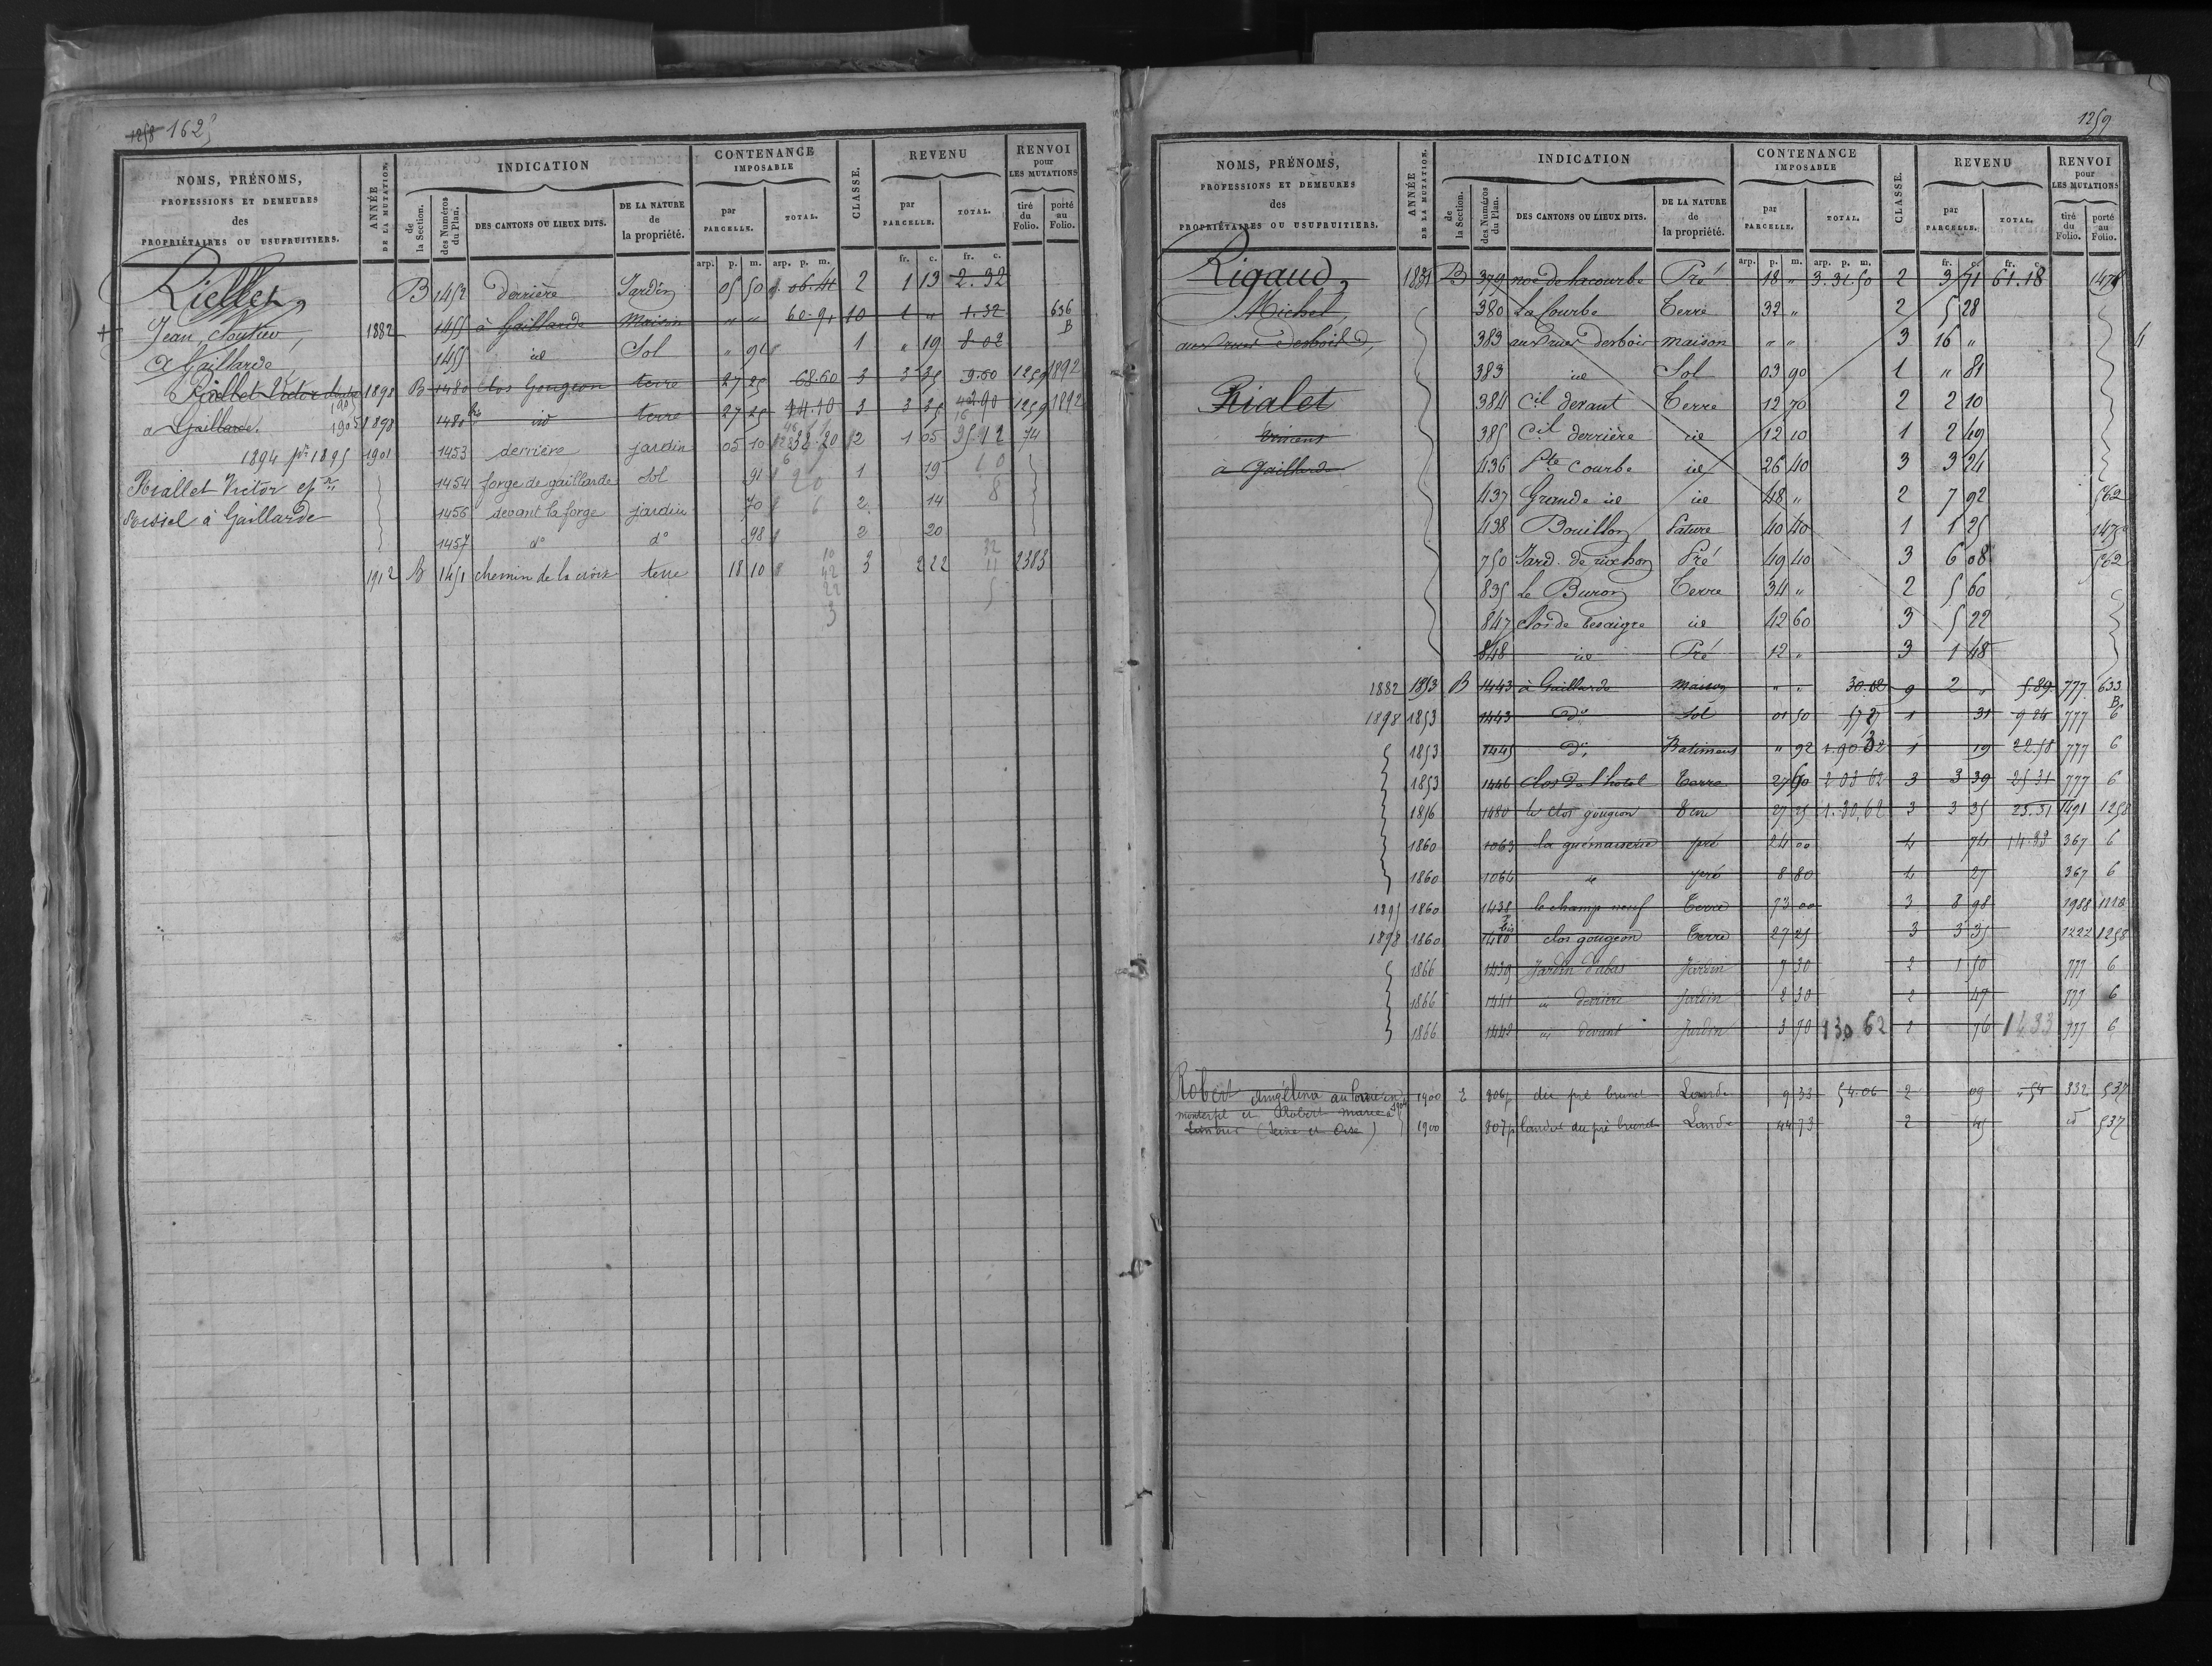 1258 162
NOMS, PRÉNOMS,
PROFESSIONS ET DEMEURES
des
PROPRIÉTAIRES OU USUFRUITIERS.
ANNÉE DE LA MUTATION.
INDICATION
de la Section.
des Numéros du Plan.
DES CANTONS OU LIEUX DITS.
DE LA NATURE de la propriété.
CONTENANCE IMPOSABLE
par PARCELLE.
TOTAL.
CLASSE.
REVENU
par PARCELLE.
TOTAL.
RENVOI pour LES MUTATIONS
tiré du Folio.
porté au Folio.
arp. p. m. arp. p. m. fr. c. fr. c.
Riellet B 1452 derrière Jardin 05 50 06.41 2 1 13 2.32
Jean, cloutier, 1882 1455 à Gaillarde Maison " " 60.91 10 1 " 1.32 636 B
à Gaillarde 1455 id Sol " 91 1 " 19 8 02
Riallet Victor 1898 B 1480 clos Gougeon terre 27 25 68.60 3 3 35 9.60 1259 1892
a Gaillarde. 1905 1898 1480 bis id terre 27 25 3 3 35 1259 1892
1894 1895 1901 1453 derrière jardin 05 10 38.20 2 1 05 74
Riallet Victor ep 1454 forge de gaillarde Sol 91 1 19
à Gaillarde 1456 devant la forge jardin 70 2 14
1457 d° d° 98 2 20
1912 B 1451 chemin de la croix terre 18 10 3 2 22 2383
1259
NOMS, PRÉNOMS,
PROFESSIONS ET DEMEURES
des
PROPRIÉTAIRES OU USUFRUITIERS.
ANNÉE DE LA MUTATION.
INDICATION
de la Section.
des Numéros du Plan.
DES CANTONS OU LIEUX DITS.
DE LA NATURE de la propriété.
CONTENANCE IMPOSABLE
par PARCELLE.
TOTAL.
CLASSE.
REVENU
par PARCELLE.
TOTAL.
RENVOI pour LES MUTATIONS
tiré du Folio.
porté au Folio.
arp. p. m. arp. p. m. fr. c. fr. c.
Rigaud, B 379 noë de la courbe Pré 18 " 3.31.50 2 3 71 61.18 1478
Michel, 380 La Courbe Terre 32 " 2 5 28
aux rues desbois 383 aux rues desbois maison " " 3 16 "
383 id Sol 03 90 1 " 81
Rialet 384 Cil devant Terre 12 70 2 2 10
Vincent 385 Cil derrière id 12 10 1 2 49
à Gaillarde 436 Pte Courbe id 26 40 3 3 24
437 Grande id id 48 " 2 7 92 562
438 Bouillon Pature 40 40 1 1 25 1475
750 Jard. de rochon Pré 49 40 3 6 08 562
835 Le Buron Terre 34 " 2 5 60
847 clos de Besaigre id 42 60 3 5 22
848 id Pré 12 " 3 1 48
1882 1853 B 1443 à Gaillarde Maison " " 30.02 9 2 " 5.89 777 633 B
1898 1853 1443 d° Sol 01 50 57 27 1 31 9 24 777 6
1853 1445 d° Batiment " 92 1 19 22.58 777 6
1853 1446 clos de l'hotel Terre 27 60 2 03 62 3 3 39 25 31 777 6
1856 1480 le clos gougeon Terre 27 25 1.30,62 3 3 35 25.31 1491 1258
1860 1063 la guémaiserie pré 24 00 4 74 14.33 367 6
1860 1064 id pré 8 80 4 27 367 6
1895 1860 1438 le champ neuf Terre 73 00 3 8 98 1988 1118
1898 1860 1480 bis clos gougeon Terre 27 25 3 3 35 1222 1258
1866 1439 Jardin d'abas Jardin 7 30 2 1 50 777 6
1866 1441 id derrière Jardin 2 30 2 47 777 6
1866 1442 id devant Jardin 3 70 130 62 2 76 14.33 777 6
Robert Angélina au 1900 E 806p du pré brunet Lande 9 33 54.06 2 09 "54 332 537
monterfil et Robert Marie à
(Seine et Oise) 1900 807p landes du pré brunet Lande 44 73 2 45 id 537